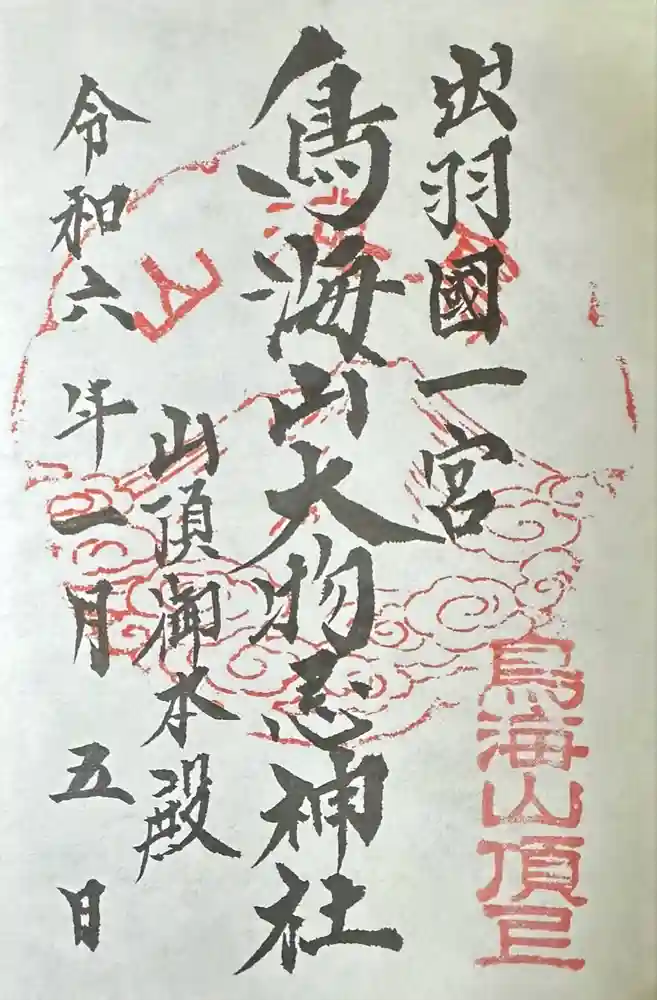 出羽國一宮
鳥海山大物忌神社
山頂御本殿
令和六年一月五日
鳥海山
鳥海山頂印